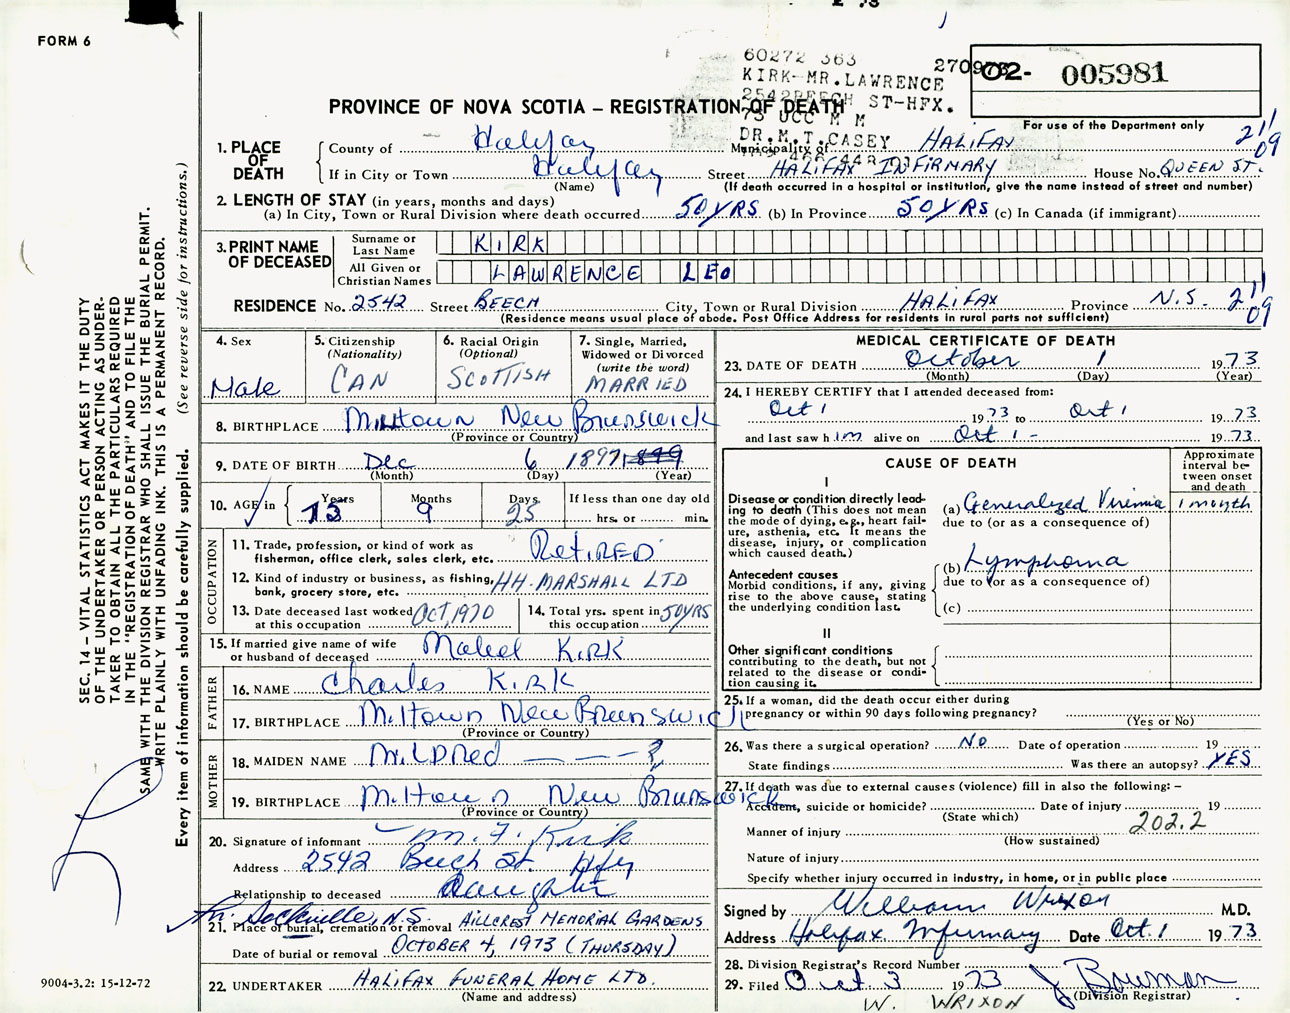 FORM 6
60272 363
KIRK-MR.LAWRENCE
2542BEECH ST-HFX.
73 UCC M M
DR.M.T.CASEY
02- 005981
For use of the Department only
PROVINCE OF NOVA SCOTIA – REGISTRATION OF DEATH
1. PLACE OF DEATH
County of Halifax Municipality of HALIFAX 211
If in City or Town Halifax Street HALIFAX INFIRMARY House No. QUEEN ST. 09
(Name) (If death occurred in a hospital or institution, give the name instead of street and number)
2. LENGTH OF STAY (in years, months and days)
(a) In City, Town or Rural Division where death occurred 50 YRS (b) In Province 50 YRS (c) In Canada (if immigrant)
3. PRINT NAME OF DECEASED
Surname or Last Name KIRK
All Given or Christian Names LAWRENCE LEO
RESIDENCE No. 2542 Street BEECH City, Town or Rural Division HALIFAX Province N.S. 211 09
(Residence means usual place of abode. Post Office Address for residents in rural parts not sufficient)
4. Sex
Male
5. Citizenship (Nationality)
CAN
6. Racial Origin (Optional)
SCOTTISH
7. Single, Married, Widowed or Divorced (write the word)
MARRIED
8. BIRTHPLACE Milltown New Brunswick
(Province or Country)
9. DATE OF BIRTH Dec 6 1897 1899
(Month) (Day) (Year)
10. AGE in
Years 73
Months 9
Days 25
If less than one day old
hrs. or min.
OCCUPATION
11. Trade, profession, or kind of work as fisherman, office clerk, sales clerk, etc. RETIRED
12. Kind of industry or business, as fishing, bank, grocery store, etc. HH. MARSHALL LTD
13. Date deceased last worked at this occupation OCT, 1970
14. Total yrs. spent in this occupation 50 YRS
15. If married give name of wife or husband of deceased Mabel KIRK
FATHER
16. NAME Charles KIRK
17. BIRTHPLACE Miltown New Brunswick
(Province or Country)
MOTHER
18. MAIDEN NAME MilDRed — — — ?
19. BIRTHPLACE Miltown New Brunswick
(Province or Country)
20. Signature of informant M. F. Kirk
Address 2542 Beech St. Hfx
Relationship to deceased daughter
Sackville, N.S. HILLCREST MEMORIAL GARDENS
21. Place of burial, cremation or removal
Date of burial or removal OCTOBER 4, 1973 (THURSDAY)
22. UNDERTAKER HALIFAX FUNERAL HOME LTD.
(Name and address)
MEDICAL CERTIFICATE OF DEATH
23. DATE OF DEATH October 1 1973
(Month) (Day) (Year)
24. I HEREBY CERTIFY that I attended deceased from:
Oct 1 1973 to Oct 1 1973
and last saw him alive on Oct 1 - 1973
CAUSE OF DEATH
Approximate interval between onset and death
I
Disease or condition directly leading to death (This does not mean the mode of dying, e.g., heart failure, asthenia, etc. It means the disease, injury, or complication which caused death.)
(a) Generalized Viremia 1 month
due to (or as a consequence of)
Antecedent causes
Morbid conditions, if any, giving rise to the above cause, stating the underlying condition last.
(b) Lymphoma
due to (or as a consequence of)
(c)
II
Other significant conditions
contributing to the death, but not related to the disease or condition causing it.
25. If a woman, did the death occur either during pregnancy or within 90 days following pregnancy?
(Yes or No)
26. Was there a surgical operation? NO Date of operation 19
State findings Was there an autopsy? YES
27. If death was due to external causes (violence) fill in also the following: –
Accident, suicide or homicide? Date of injury 19
(State which) 202.2
Manner of injury
(How sustained)
Nature of injury
Specify whether injury occurred in industry, in home, or in public place
Signed by William Wrixon M.D.
Address Halifax Infirmary Date Oct. 1 1973
28. Division Registrar's Record Number
29. Filed Oct 3 1973 J Bowman
(Division Registrar)
W. WRIXON
SEC. 14 – VITAL STATISTICS ACT MAKES IT THE DUTY
OF THE UNDERTAKER OR PERSON ACTING AS UNDER-
TAKER TO OBTAIN ALL THE PARTICULARS REQUIRED
IN THE "REGISTRATION OF DEATH" AND TO FILE THE
SAME WITH THE DIVISION REGISTRAR WHO SHALL ISSUE THE BURIAL PERMIT.
WRITE PLAINLY WITH UNFADING INK. THIS IS A PERMANENT RECORD.
Every item of information should be carefully supplied. (See reverse side for instructions.)
9004-3.2: 15-12-72